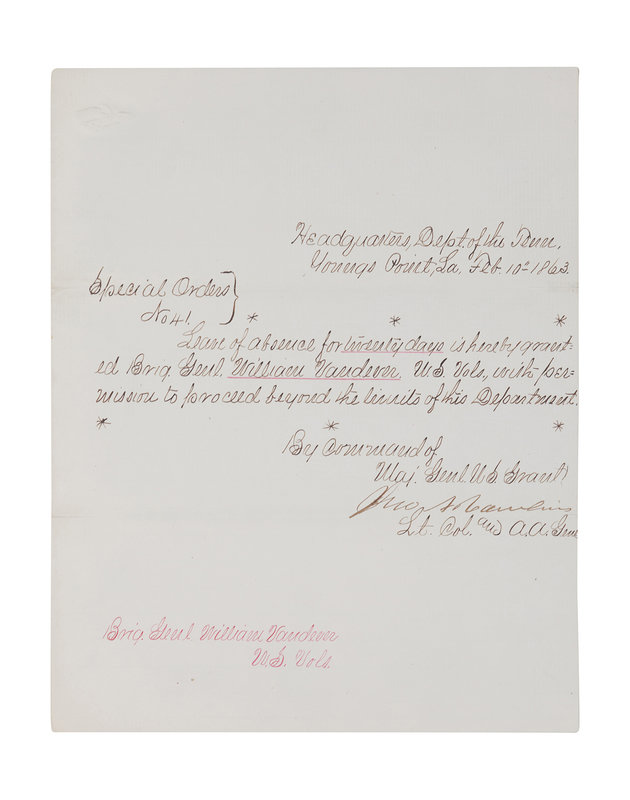 Headquarters, Dept. of the Tenn,
Youngs Point, La, Feb. 10th 1863.
Special Orders }
No 41.
* * *
Leave of absence for twenty days is hereby grant-
ed Brig. Genl. William Vandever. U.S. Vols., with per-
mission to proceed beyond the limits of his Department.
* * *
By Command of
Maj. Genl. U.S. Grant
Jno A Rawlins
Lt. Col. and A.A. Genl
Brig. Genl. William Vandever
U.S. Vols.